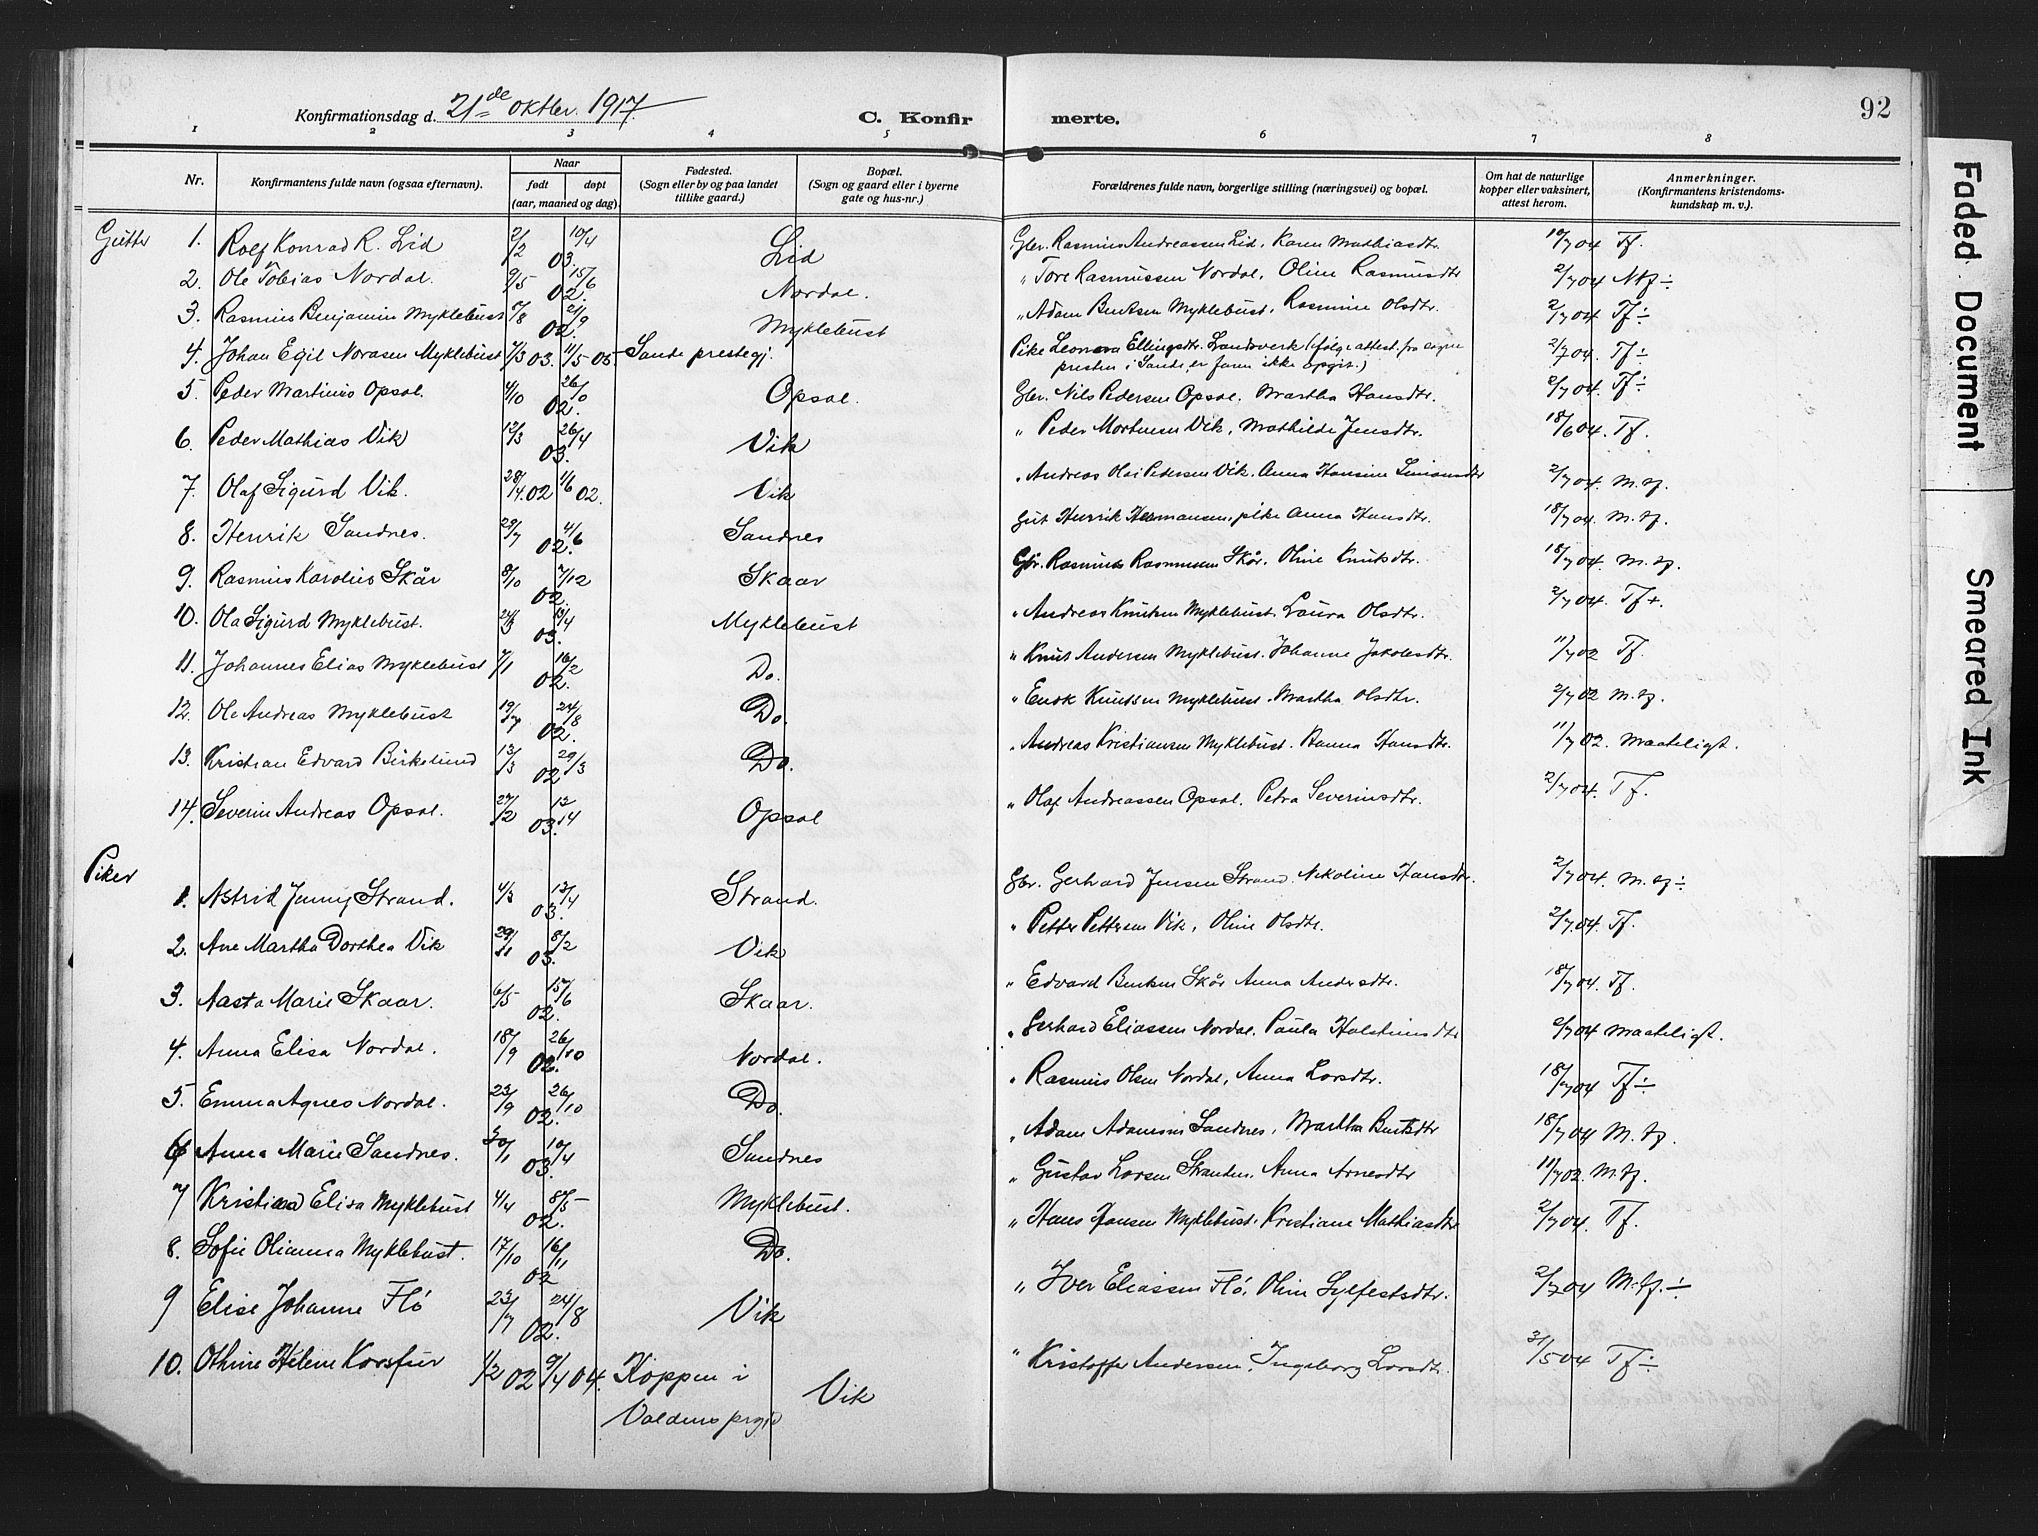 92
Konfirmationsdag d. 21de oktber. 1917.
C. Konfir merte.
1 2 3 4 5 6 7 8
Nr. Konfirmantens fulde navn (ogsaa efternavn). Naar født døpt (aar, maaned og dag). Fødested. (Sogn eller by og paa landet tillike gaard.) Bopæl. (Sogn og gaard eller i byerne gate og hus-nr.) Forældrenes fulde navn, borgerlige stilling (næringsvei) og bopæl. Om hat de naturlige kopper eller vaksinert, attest herom. Anmerkninger. (Konfirmantens kristendoms-kundskap m. v.).
Gutter 1. Rolf Konrad R. Lid 2/2 10/4 03. Lid Gbr. Rasmus Andreassen Lid, Karen Mathiasdtr. 10/7 04 Tf.
2. Ole Tobias Nordal. 9/5 15/6 02. Nordal. " Tore Rasmussen Nordal, Oline Rasmusdtr 2/7 04 Mtf ÷
3. Rasmus Benjamin Myklebust 5/8 21/9 02. Myklebust " Adam Bentsen Myklebust, Rasmine Olsdtr. 2/7 04 Tf ÷
4. Johan Egil Norasen Myklebust 7/3 03. 11/5 05 Sande prestegj. Pike Leonora Ellingsdtr. Landsverk (følge attest fra sogne
presten i Sande, er faren ikke opgit.) 2/7 04. Tf ÷
5. Peder Martinus Opsal. 4/10 26/10 02. Opsal. Gbr. Nils Pedersen Opsal. Martha Hansdtr. 2/7 04. Tf ÷
6. Peder Mathias Vik 12/3 26/4 03. Vik " Peder Mortensen Vik, Mathilde Jensdtr. 18/6 04. Tf.
7. Olaf Sigurd Vik. 28/4 02 1/6 02. Vik " Andreas Olai Pedersen Vik. Anna Hansine Simonsdtr 2/7 04. M.tf.
8. Henrik Sandnes. 29/7 02. Sandnes Gut Henrik Hermansen, pike Anna Hansdtr. 18/7 04. M.tf.
9. Rasmus Karolius Skår 8/10 7/12 02 Skaar Gbr. Rasmus Rasmussen Skår. Oline Knutsdtr. 18/7 04. M.tf.
10. Ola Sigurd Myklebust. 24/3 13/4 03. Myklebust " Andreas Knutsen Myklebust. Laura Olsdtr. 2/7 04. Tf+.
11. Johannes Elias Myklebust 7/1 16/2 02. Do. " Knut Andersen Myklebust. Johanne Jakobsdtr. 11/7 02 Tf.
12. Ole Andreas Myklebust 19/7 24/8 02. Do. " Enok Knutsen Myklebust. Martha Olsdtr. 2/7 02 M.tf.
13. Kristian Edvard Birkelund 13/3 29/3 02 Do. " Andreas Kristiansen Myklebust. Hanna Hansdtr. 11/7 02. Maateligt.
14. Severin Andreas Opsal. 27/2 03. 13/4 Opsal " Olaf Andreassen Opsal. Petra Severinsdtr. 2/7 04. Tf.
Piker
1. Astrid Jenny Strand. 4/3 13/4 03. Strand. Gbr. Gerhard Jensen Strand. Nikoline Hansdtr. 2/7 04. M.tf ÷
2. Ane Martha Dorthea Vik 29/11 8/2 03. Vik " Petter Pettersen Vik, Oline Olsdtr. 2/7 04. Tf.
3. Aasta Marie Skaar. 6/5 15/6 02. Skaar. " Edvard Bentsen Skår Anna Andersdtr. 18/7 04. Tf.
4. Anna Elisa Nordal. 18/9 26/10 02. Nordal. " Gerhard Eliassen Nordal. Paula Halsteinsdtr 2/7 04 Maateligt.
5. Emma Agnes Nordal. 23/9 26/10 02. Do. " Rasmus Olsen Nordal, Anna Larsdtr. 18/7 04 Tf ÷
6. Anna Marie Sandnes. 30/1 10/4 03. Sandnes " Adam Adamsen Sandnes, Martha Bentsdtr 18/7 04 M.tf.
" Gustav Larsen Stranden. Anna Arnesdtr 11/7 02. M.tf.
7 Kristiane Elisa Myklebust 4/4 8/5 02. Myklebust. " Hans Hansen Myklebust. Kristiane Mathiasdtr 2/7 04. Tf.
8. Sofie Olianna Myklebust. 17/10 16/11 02 Do.
9 Elise Johanne Flö 23/7 24/8 02. Vik " Iver Eliassen Flö, Oline Sylfestsdtr. 2/7 04 M.tf. ÷
10. Othine Helene Korsfur 1/2 02 9/4 04. Koppen i
Valdens prgjd Vik " Kristoffer Andersen, Ingeborg Larsdtr. 31/5 04 Tf ÷
Faded Document
Smeared Ink